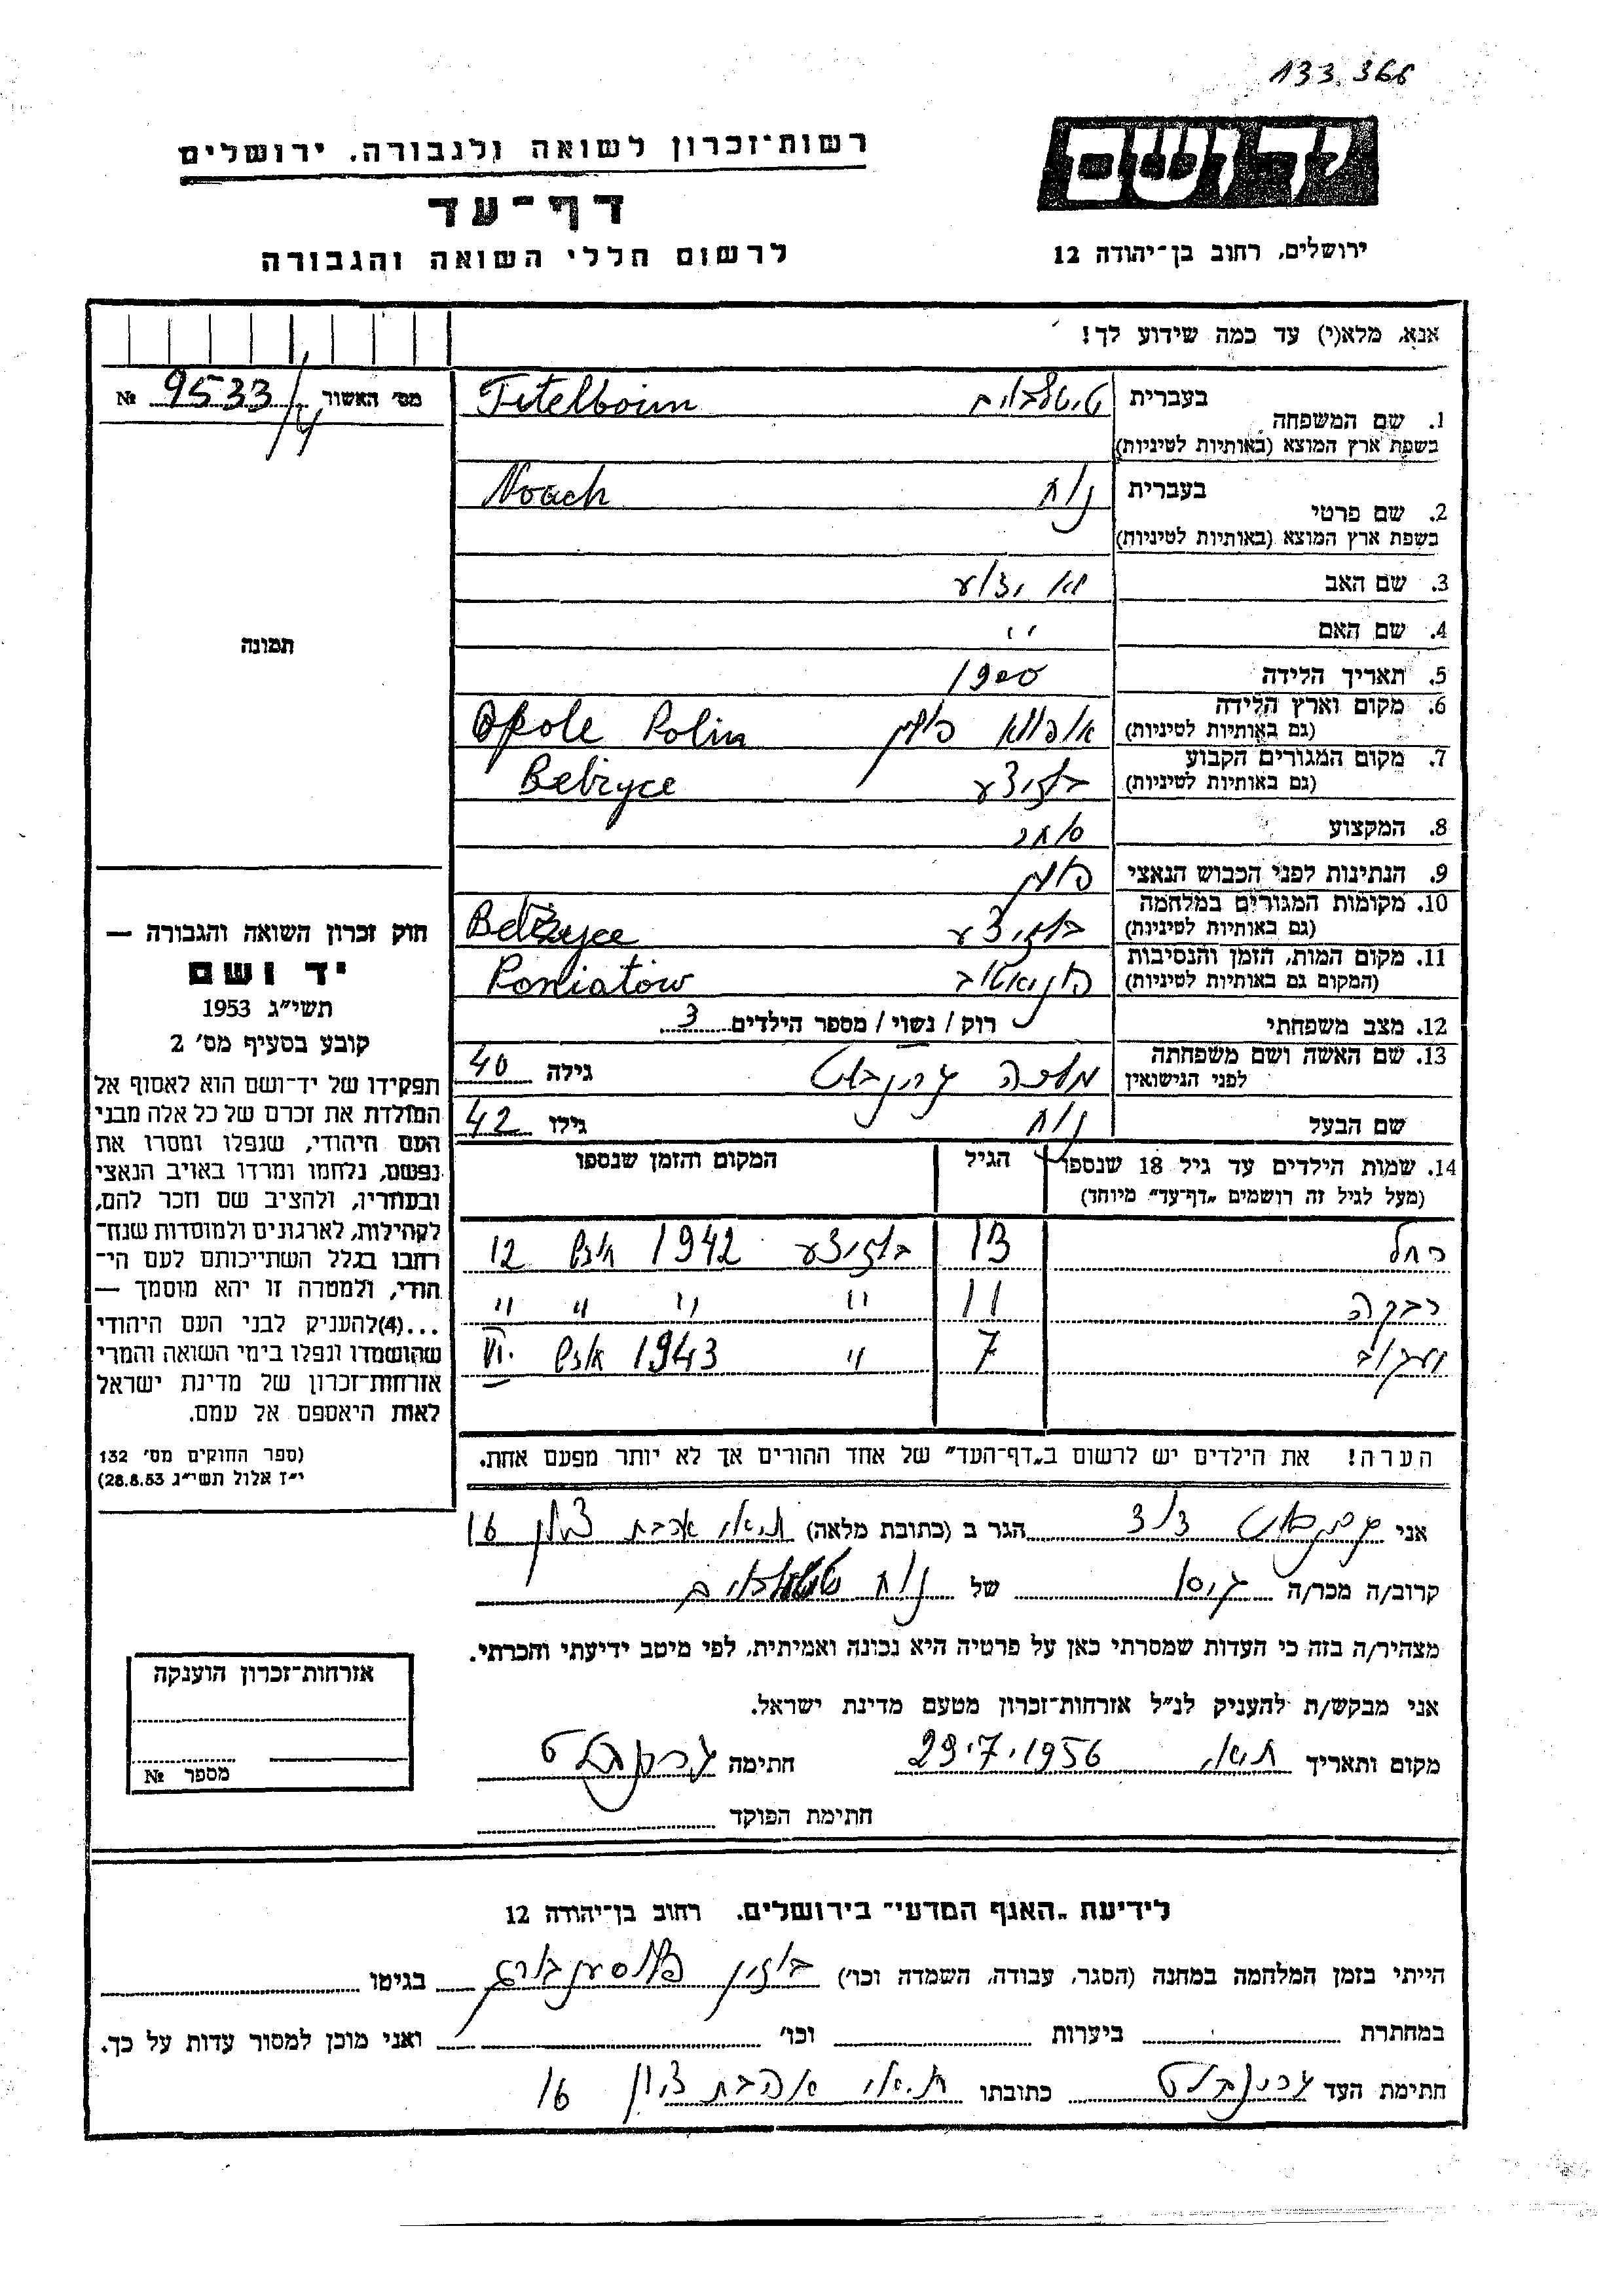 133.366
יד ושם
רשות־זכרון לשואה ולגבורה. ירושלים
דף־עד
לרשום חללי השואה והגבורה
ירושלים, רחוב בן־יהודה 12
אנא, מלא(י) עד כמה שידוע לך!
מס׳ האשור 9533/4 №
1. שם המשפחה בעברית טיטלבוים Titelboim
בשפת ארץ המוצא (באותיות לטיניות)
2. שם פרטי בעברית נוח Noach
בשפת ארץ המוצא (באותיות לטיניות)
3. שם האב לא ידוע
4. שם האם ״
תמונה
5. תאריך הלידה 1900
6. מקום וארץ הלידה אופולא פולין Opole Polin
(גם באותיות לטיניות)
7. מקום המגורים הקבוע בלזיצע Belzyce
(גם באותיות לטיניות)
8. המקצוע סוחר
9. הנתינות לפני הכבוש הנאצי פולין
10. מקומות המגורים במלחמה בלזיצע Belzyce
(גם באותיות לטיניות)
11. מקום המות, הזמן והנסיבות פוניאטוב Poniatow
(המקום גם באותיות לטיניות)
12. מצב משפחתי רוק / נשוי / מספר הילדים 3
13. שם האשה ושם משפחתה מלכה גרינבלט גילה 40
לפני הנישואין
שם הבעל נוח גילו 42
14. שמות הילדים עד גיל 18 שנספו הגיל המקום והזמן שנספו
(מעל לגיל זה רושמים „דף־עד״ מיוחד)
רחל 13 בלזיצע 1942 חודש 12
רבקה 11 ״ ״ ״ ״
יעקוב 7 ״ 1943 חודש VI
הערה! את הילדים יש לרשום ב„דף־העד״ של אחד ההורים אך לא יותר מפעם אחת.
חוק זכרון השואה והגבורה —
יד ושם
תשי״ג 1953
קובע בסעיף מס׳ 2
תפקידו של יד־ושם הוא לאסוף אל
המולדת את זכרם של כל אלה מבני
העם היהודי, שנפלו ומסרו את
נפשם, נלחמו ומרדו באויב הנאצי
ובעוזריו, ולהציב שם וזכר להם,
לקהילות, לארגונים ולמוסדות שנח־
רחבו בגלל השתייכותם לעם הי־
הודי, ולמטרה זו יהא מוסמך —
...(4)להעניק לבני העם היהודי
שהושמדו ונפלו בימי השואה והמרי
אזרחות־זכרון של מדינת ישראל
לאות היאספם אל עמם.
(ספר החוקים מס׳ 132
י״ז אלול תשי״ג 28.8.53)
אני גרינבלט דוד הגר ב (כתובת מלאה) ת״א, אהבת ציון 16
קרוב/ה מכר/ה גיסו של נוח טיטלבוים
מצהיר/ה בזה כי העדות שמסרתי כאן על פרטיה היא נכונה ואמיתית, לפי מיטב ידיעתי והכרתי.
אני מבקש/ת להעניק לנ״ל אזרחות־זכרון מטעם מדינת ישראל.
מקום ותאריך ת״א, 29.7.1956 חתימה גרינבלט
חתימת הפוקד
אזרחות־זכרון הוענקה
מספר №
לידיעת „האגף המדעי״ בירושלים. רחוב בן־יהודה 12
הייתי בזמן המלחמה במחנה (הסגר, עבודה, השמדה וכו׳) בודזין פלוסענבורג בגיטו
במחתרת ביערות וכו׳ ואני מוכן למסור עדות על כך.
חתימת העד גרינבלט כתובתו ת״א, אהבת ציון 16